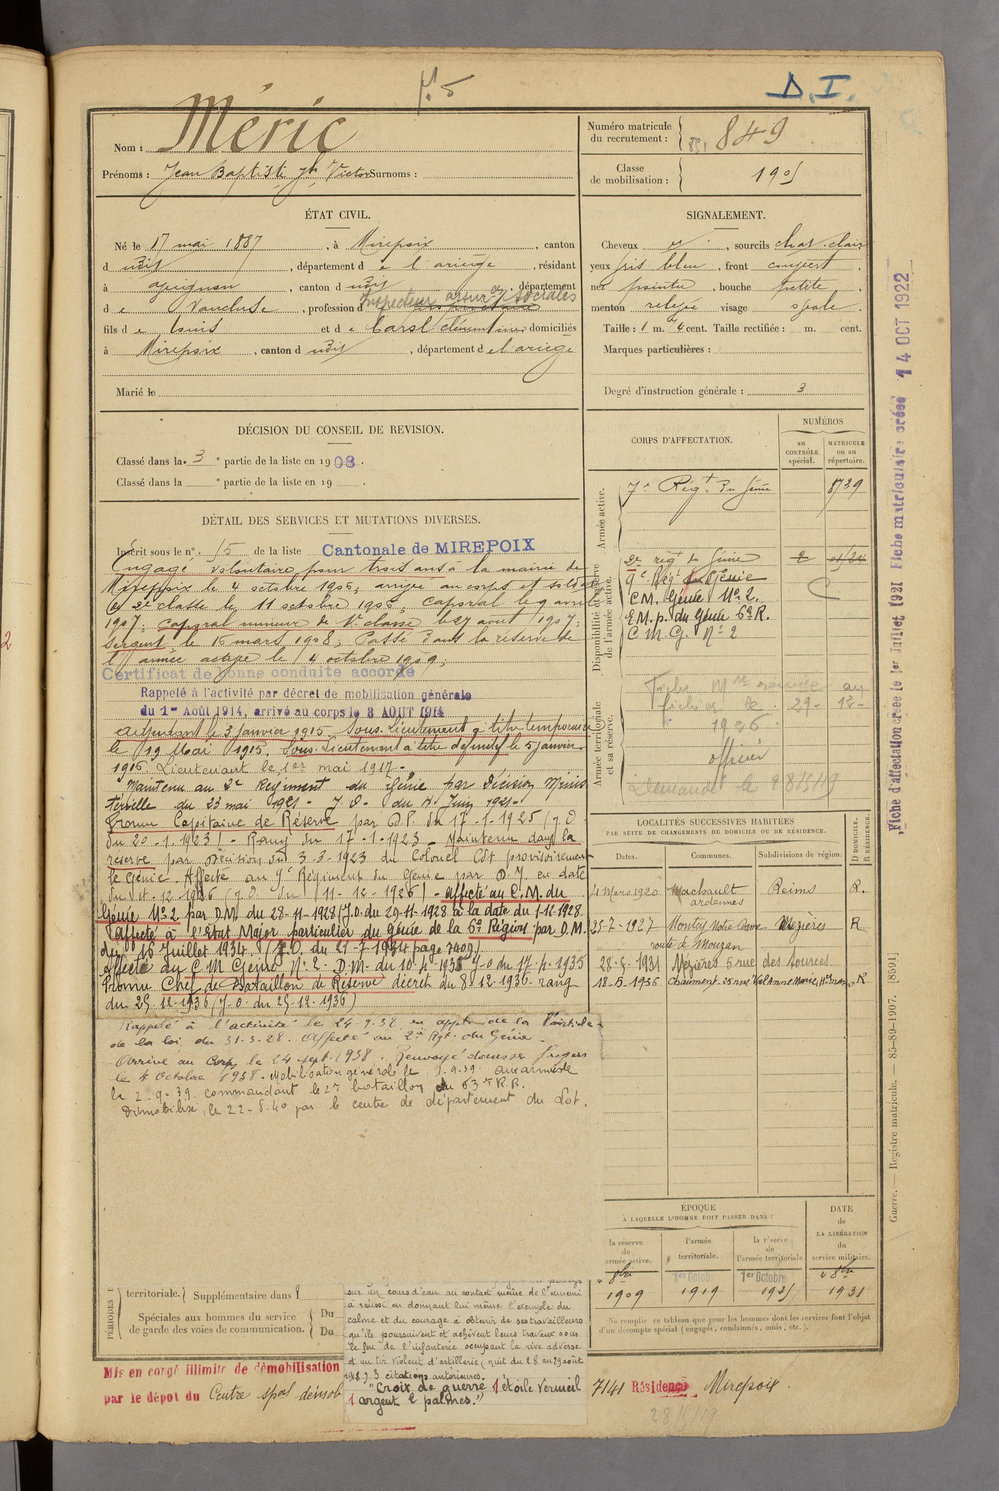 D.I.
Nom : Méric
Prénoms : Jean Baptiste Jh Victor Surnoms :
Numéro matricule du recrutement : 849
Classe de mobilisation : 1905
ÉTAT CIVIL.
Né le 17 mai 1887, à Mirepoix, canton
d udit, département de l'ariège, résidant
à avignon, canton d udit, département
de Vaucluse, profession d Inspecteur assur ces sociales
fils de Louis et de Carol Clémentine domiciliés
à Mirepoix, canton d udit, département de l'ariège
Marié le
SIGNALEMENT.
Cheveux , sourcils chat. clair
yeux gris bleu, front couvert,
nez pointu, bouche petite,
menton relevé visage ovale.
Taille : 1 m. cent. Taille rectifiée : m. cent.
Marques particulières :
Degré d'instruction générale : 3
DÉCISION DU CONSEIL DE REVISION.
Classé dans la 3e partie de la liste en 1908.
Classé dans la e partie de la liste en 19 .
DÉTAIL DES SERVICES ET MUTATIONS DIVERSES.
Inscrit sous le n° 15 de la liste Cantonale de MIREPOIX
Engagé volontaire pour trois ans à la mairie de
Mirepoix le 4 octobre 1906, arrivé au corps et soldat
de 2e classe le 11 octobre 1906, caporal le 9 avril
1907, caporal mineur de 1re classe le 27 aout 1907;
Sergent le 15 mars 1908; Passé dans la réserve de
l'armée active le 4 octobre 1909,
Certificat de bonne conduite accordé
Rappelé à l'activité par décret de mobilisation générale
du 1er Août 1914, arrivé au corps le 8 AOUT 1914
adjudant le 3 janvier 1915 Sous-Lieutenant à titre temporaire
le 19 Mai 1915. Sous-Lieutenant à titre définitif le 5 janvier
1916. Lieutenant le 1er mai 1917.
Maintenu au 2e Régiment du Génie par Décision Minis
térielle du 23 mai 1921 - J.O. du 4 Juin 1921 -
Promu Capitaine de Réserve par DP. du 17-1-1925 (J.O
du 20-1-1923) - Rang du 17-1-1923 - Maintenu dans la
réserve par décision du 3-3-1923 du Colonel Cdt provisoirement
le Génie. Affecté au 9e Régiment du Génie par D.M. en date
du 4-12-1926 (J.O. du 11-12-1926) - affecté au C.M. du
Génie N°2 par D.M. du 28-11-1928 (J.O. du 29-11-1928 à la date du 1-12-1928
Affecté à l'Etat Major particulier du Génie de la 6e Région par D.M.
du 16 Juillet 1934. (J.O. du 21-7-1934 page 7409)
affecté au C M Génie N° 2 - D.M. du 10-4-1935 J.O du 17-4-1935
Promu Chef de Bataillon de Réserve décret du 8-12-1936 rang
du 25-12-1936 (J.O. du 25-12-1936)
Rappelé à l'activité le 24-9-38 en appon de la
de la loi du 31-3-28. Affecté au 2e Rgt. du Génie.
Arrivé au Corps le 24 sept. 1938. Renvoyé dans ses foyers
le 4 Octobre 1938. Mobilisation générale le 2-9-39. aux armées
le 2-9-39. commandant le 2me bataillon du 63me R.R.
Démobilisé le 22-8-40 par le centre de département du Lot.
CORPS D'AFFECTATION.
NUMÉROS
au CONTRÔLE spécial.
MATRICULE ou au répertoire.
Armée active.
7e Regt du Génie 8739
Disponibilité et réserve de l'armée active.
2e régt du Génie
9e Régt du Génie
C.M. Génie N° 2.
E.M. p. du Génie 6e R.
C.M.G. N° 2
Armée territoriale et sa réserve.
Fiche Mle renvoyée au
fichier le 29-12-
1926
officier
Demande le 28/5/19
LOCALITÉS SUCCESSIVES HABITÉES
PAR SUITE DE CHANGEMENTS DE DOMICILE OU DE RÉSIDENCE.
Dates. Communes. Subdivisions de région. D DOMICILE. R RÉSIDENCE.
4 Mars 1920 Machault ardennes Reims R.
25-7-1927 Montcy Notre Dame route de Mouzon Mézières R
28-5-1931 Mézières 5 rue des Sources
18-6-1936 Chaumont. 25 rue Voltaire R
ÉPOQUE
À LAQUELLE L'HOMME DOIT PASSER DANS :
la réserve de l'armée active. l'armée territoriale. la réserve de l'armée territoriale
DATE de LA LIBÉRATION du service militaire.
8bre 1909 1er Octobre 1919 1er Octobre 1925 8bre 1931
Ne remplir ce tableau que pour les hommes dont les services font l'objet
d'un décompte spécial (engagés, condamnés, omis, etc.).
PÉRIODES
territoriale. Supplémentaire dans l
Spéciales aux hommes du service Du
de garde des voies de communication. Du
sur un cours d'eau au contact même de l'ennemi
a réussi en donnant lui même l'exemple du
calme et du courage à obtenir de ses travailleurs
qu'ils poursuivent et achèvent leurs travaux sous
le feu de l'infanterie occupant la rive adverse
et un tir violent d'artillerie (nuit du 28 au 29 août
1918). 3 citations antérieures.
"Croix de guerre 1 étoile Vermeil
1 argent 2 palmes."
Mis en congé illimité de démobilisation
par le dépôt du Centre spal démob
7141 Résidence Mirepoix.
28/5/19
Fiche d'affectation créée le 1er Juillet 1921 Fiche matriculaire créée 14 OCT 1922
Guerre. — Registre matricule. — 85-89-1907. [8591]